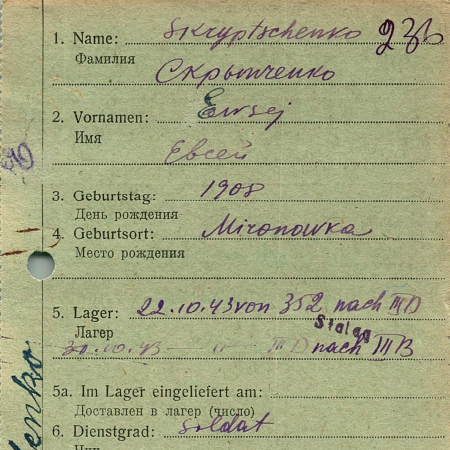 1. Name: Skryptschenko 236
Фамилия
Скрыпченко
2. Vornamen: Ewsej
Имя
Евсей
3. Geburtstag: 1908
День рождения
4. Geburtsort: Mironowka
Место рождения
5. Lager: 22.10.43 von 352 nach III D
Лагер Stalag
30.10.43 " III D nach III B
5a. Im Lager eingeliefert am:
Доставлен в лагер (число)
6. Dienstgrad: Soldat
Чин